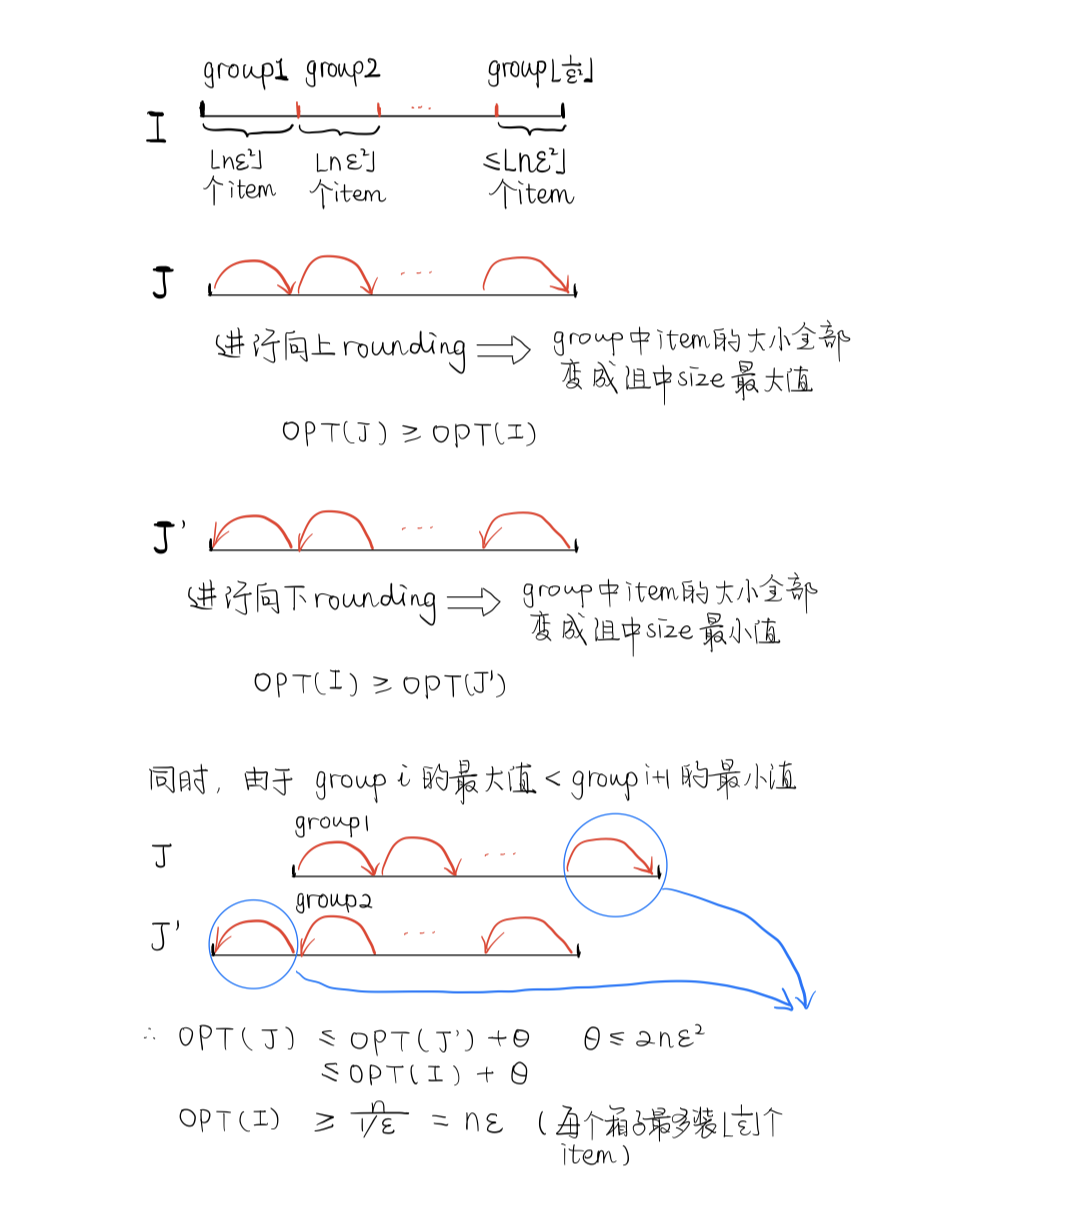 group1 group2 group⌊1/ε²⌋
I ...
⌊nε²⌋ ⌊nε²⌋ ≤⌊nε²⌋
个item 个item 个item
J ...
进行向上rounding ⇒ group中item的大小全部
变成组中size最大值
OPT(J) ≥ OPT(I)
J' ...
进行向下rounding ⇒ group中item的大小全部
变成组中size最小值
OPT(I) ≥ OPT(J')
同时, 由于 group i 的最大值 < group i+1 的最小值
group1
J ...
group2
J' ...
∴ OPT(J) ≤ OPT(J') + θ θ ≤ 2nε²
≤ OPT(I) + θ
OPT(I) ≥ n/(1/ε) = nε (每个箱子最多装⌊1/ε⌋个
item)